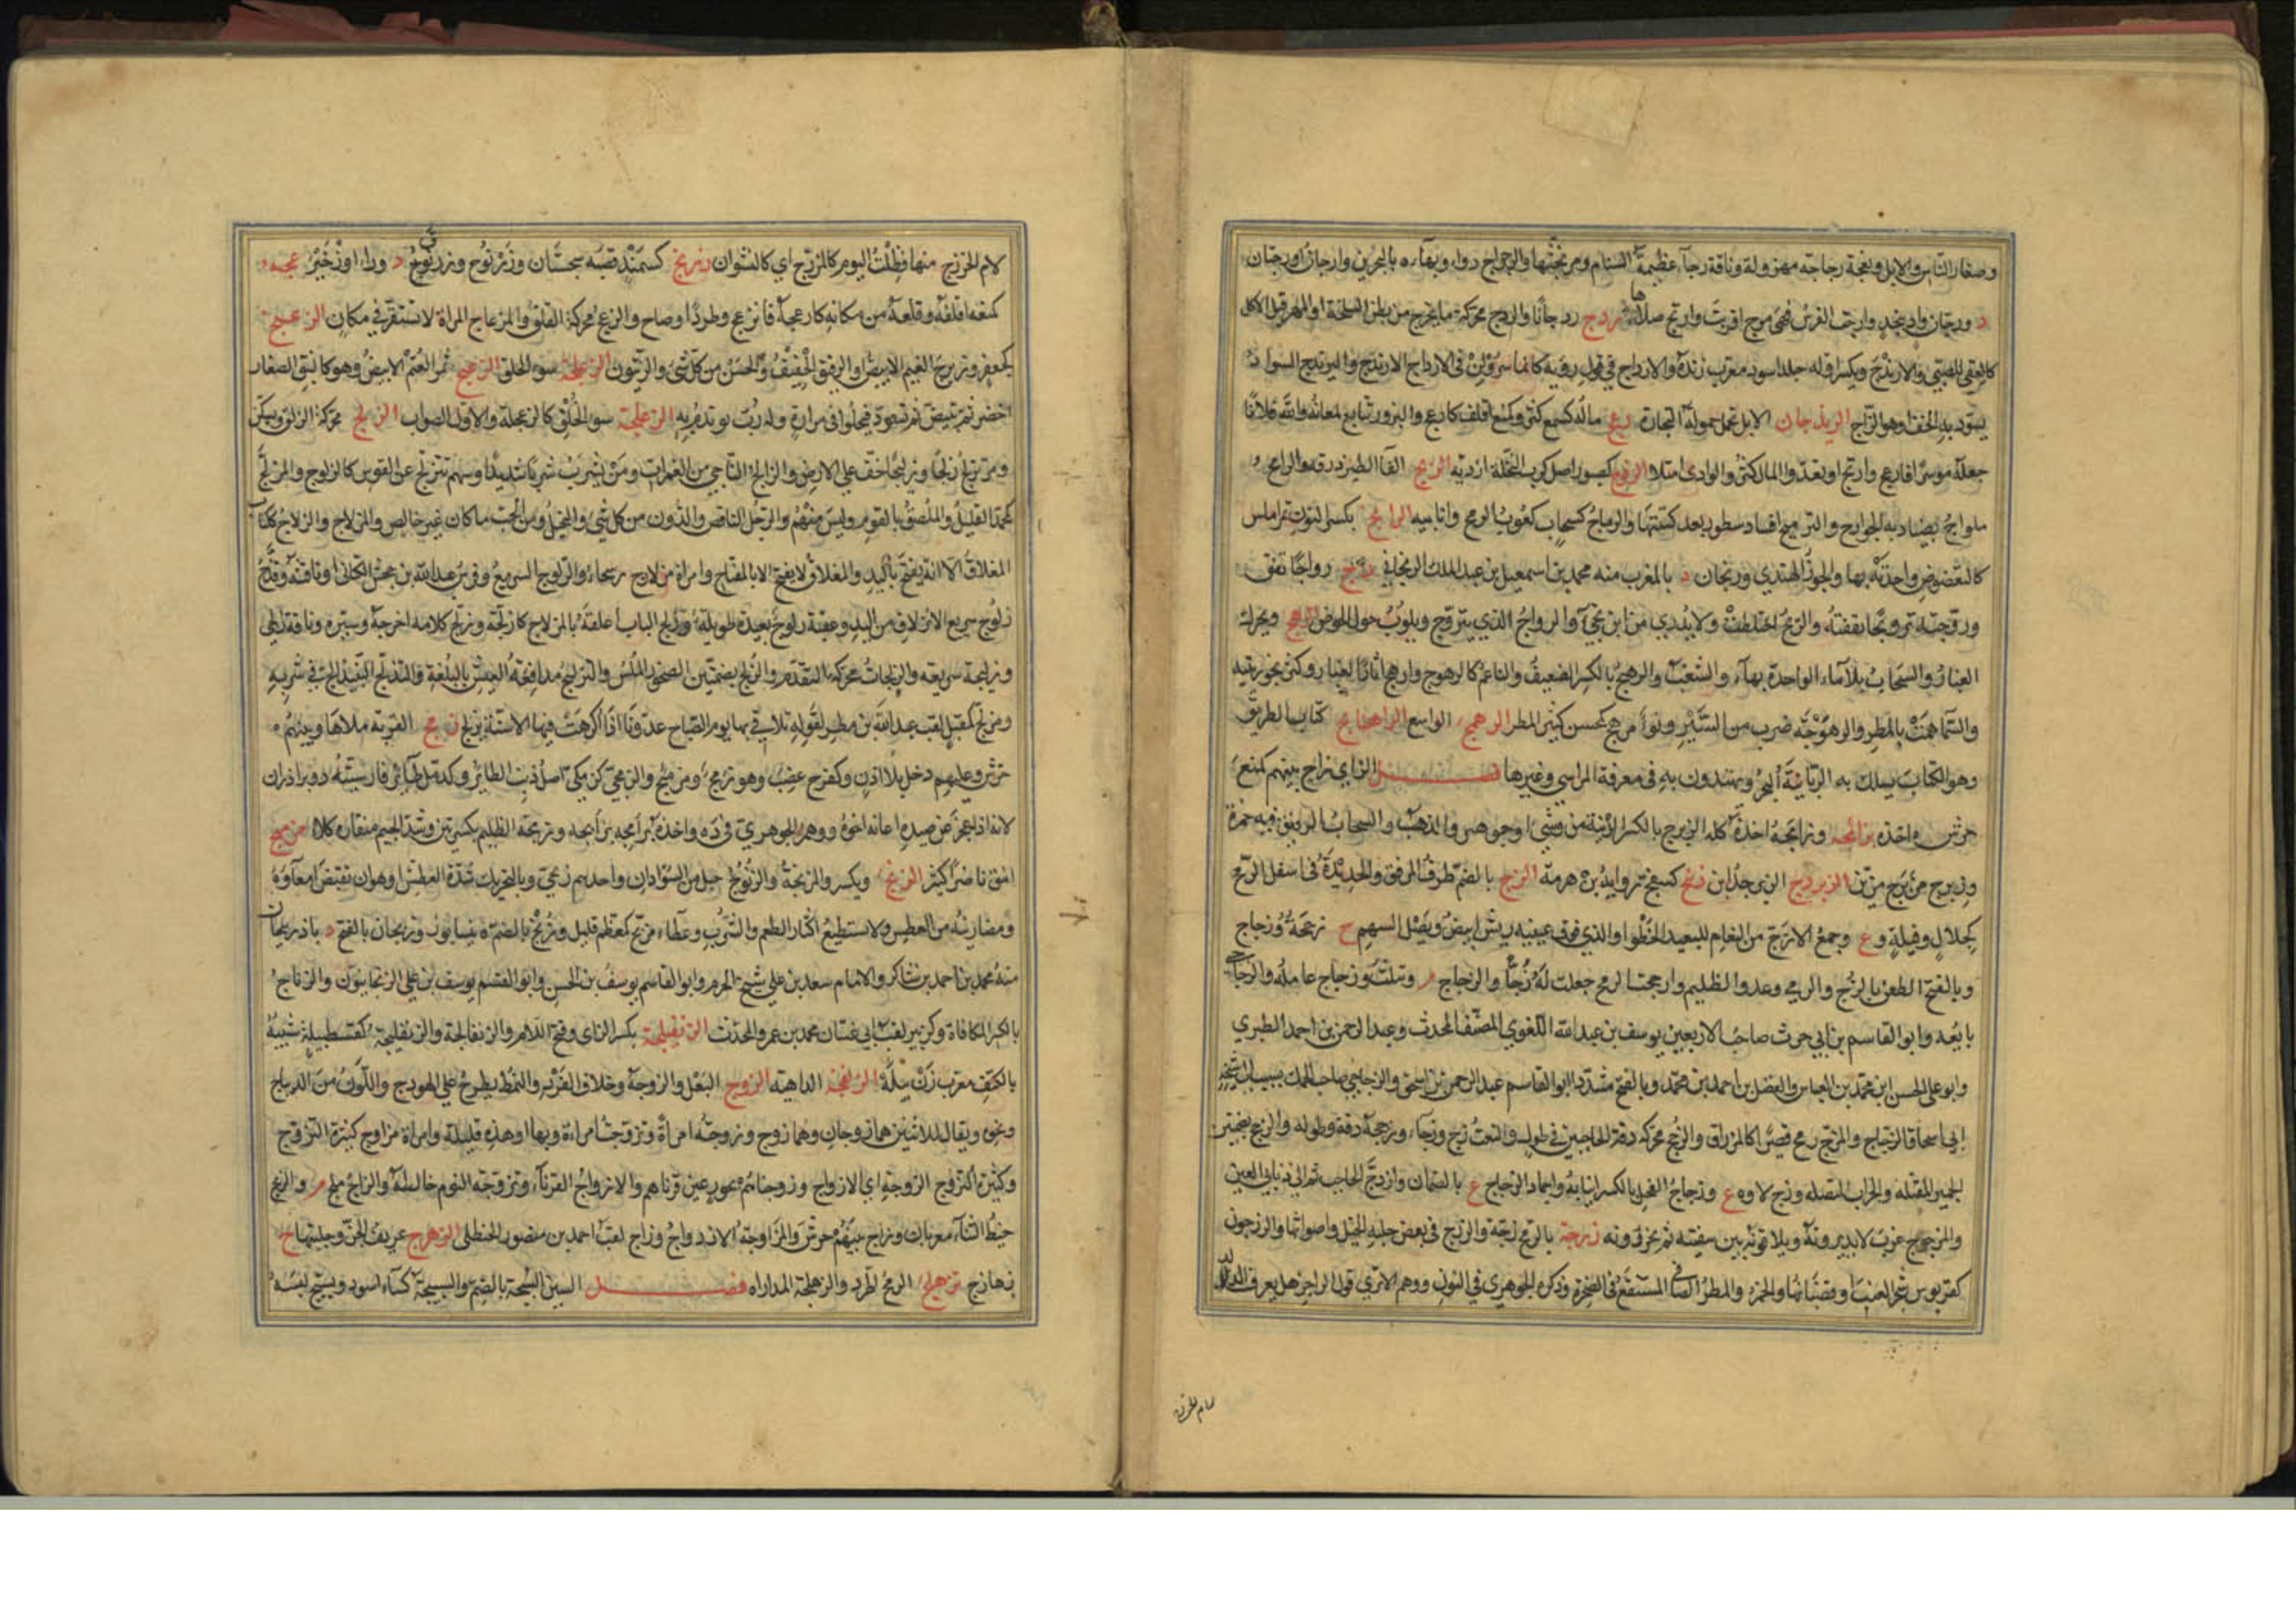 وصغار الناس والابل ونعجة رجاجة مهزولة وناقة رجآء عظيمة السنام ومرتجتها والرجراج دواء وبهاء ة بالبحرين وارجان او رجان
د ورجان واد بنجد وارجت الفرس فهي مرج اقربت وارتج صلاها ردج ردجانا والردج محركة ما يخرج من بطن السخلة او المهر قبل الاكل
كالعقي للصبي والارندج ويكسر اوله جلد اسود معرب رنده والارداج في قول رؤبة كانما سرولن في الارداج الارندج واليرندج السواد
يسود به الخف او هو الزاج الريذجان الابل تحمل حمولة التجارة رعج ماله كسمع كثر وكمنع اقلق كارعج والبرق تتابع لمعانه والله فلانا
جعله موسرا فارعج وارتج ارتعد والمال كثر والوادي امتلا الرفوج كصبور اصل كرب النخلة ازدية الرمج القآ الطير ذرقه والرامج
ملواح يصاد به الجوارح والترميج افساد سطور بعد كتبتها والرماج كسحاب كعوب الرمح وانابيبه الرانج بكسر النون تمر املس
كالتعضوض واحدته بهاء والجوز الهندي ورنجان د بالمغرب منه محمد بن اسمعيل بن عبد الملك الرنجاني راج رواجا نفق
وروجته ترويجا نفقته والريح اختلطت ولا يدرى من اين تجيء والرواج الذي يتروج ويلوب حول الحوض الرهج ويحرك
الغبار والسحاب بلا ماء الواحدة بهآء والشغب والرهيج بالكسر الضعيف والناعم كالرهوج وارهج اثار الغبار وكثر بخور بيته
والسماء همت بالمطر والرهوجة ضرب من السير ونوء مرهج كمحسن كثير المطر الرهمج الواسع الراهنامج كتاب الطريق
وهو الكتاب يسلك به الربابنة البحر ويهتدون به في معرفة المراسي وغيرها فصل الزاي زاج بينهم كمنع
حرش اخذه بزابجه وزامجه اخذه كله الزبرج بالكسر الزينة من وشي او جوهر والذهب والسحاب الرقيق فيه حمرة
وزبرج مزبرج مزين الزبردج الزبرجد ابن زبنج كسفنج راوية بن هرمة الزج بالضم طرف المرفق والحديدة في اسفل الرمح
كجلال وفيلة وع وجمع الازج من النعام للبعيد الخطو او الذي فوق عينيه ريش ابيض ونصل السهم ج زججة وزجاج
وبالفتح الطعن بالزج والرمي وعدو الظليم وازججت الرمح جعلت له زجا والزجاج م ويثلث وزجاج عامله والزجاجي
بايعه وابو القاسم بن ابي حرث صاحب الاربعين يوسف بن عبد الله اللغوي المصنف المحدث وعبد الرحمن بن احمد الطبري
وابو علي الحسن ابن محمد بن العباس والفضل بن احمد بن محمد وبالفتح مشددا ابو القاسم عبد الرحمن بن اسحق الزجاجي صاحب الجمل نسب الى شيخه
ابي اسحاق الزجاج والمزج رمح قصير كالمزراق والزجج محركة دقة الحاجبين في طول والنعت ازج وزجآء وزججه دققه وطوله والزج بضمتين
الحمير المقتلة والحراب المنصلة وزج لاوة ع وزجاج الفحل بالكسر انيابه واجماد الزجاج ع بالصمان وازدج الحاجب تم الى ذنابى العين
والمزجوج غرب لا يديرونه ويلاقون بين شفتيه ثم يخرزونه زرجه بالرمح زجه والزرج في بعض جلبة الخيل واصواتها والزرجون
كقربوس شجر العنب او قضبانها والخمر والمطر الصافي المستنقع في الصخرة وذكره الجوهري في النون ووهم الا ترى قول الراجز هل تعرف الدار
لام الخزرج
لام الخزرج منها فظلت اليوم كالمزرج اي كالنشوان زرنج كسمند قصبة سجستان وزرنوج وزرنوق د وراء اوزجند زعجه
كمنعه اقلقه وقلعه من مكانه كازعجه فانزعج وطرد وصاح والزعج محركة القلق والمزعاج المراة لا تستقر في مكان الزعبج
كجعفر وزبرج الغيم الابيض او الرقيق الخفيف والحسن من كل شيء والزيتون الزعلجة سوء الخلق الزغبج ثمر العتم الابيض وهو كالنبق الصغار
اخضر ثم يبيض ثم يسود فيحلو في مرارة وله رب يوتدم به الزغلجة سوء الخلق كالزعلجة والاول الصواب الزلج محركة الزلق ويسكن
ومر يزلج زلجا وزليجا خف على الارض والزالج الناجي من الغمرات ومن يشرب شربا شديدا وسهم يتزلج عن القوس كالزلوج والمزلج
كمحمد القليل والملصق بالقوم وليس منهم والرجل الناقص والدون من كل شيء والبخيل ومن الحب ما كان غير خالص والمزلاج والزلاج ككتاب
المغلاق الا انه يفتح باليد والمغلاق لا يفتح الا بالمفتاح وامراة مزلاج رسحاء والزلوج السريع وفرس عبد الله بن جحش الكناني او ناقته وقدح
زلوج سريع الانزلاق من اليد وعقبة زلوج بعيدة طويلة وزلج الباب اغلقه بالمزلاج كازلجه وزلج كلامه اخرجه وسيره وناقة زلجى
وزليجة سريعة والزلجان محركة التقدم والزلج بضمتين الصخور الملس والتزليج مدافعة العيش بالبلغة والتزلج النبيذ الح في شربه
ومزلج كمقبل لقب عبد الله بن مطر لقوله تلاقي بها يوم الصباح عدونا اذا اكرهت فيها الاسنة يزلج زمج القربة ملاها وبينهم
حرش وعليهم دخل بلا اذن وكفرح غضب وهو زمج ومزمئج والزمجى كزمكى اصل ذنب الطائر وكدمل طائر فارسيته دوبرادران
لانه اذا عجز عن صيده اعانه اخوه ووهم الجوهري في ده واخذه بزامجه بزابجه وزمجة الظليم بكسرتين وشد الجيم منقاره كلا مزمج
انيق ناضر كثير الزنج ويكسر والمزنجة والزنوج جيل من السودان واحدهم زنجي وبالتحريك شدة العطش او هو ان تقبض امعاؤه
ومصارينه من العطش ولا يستطيع اكثار الطعم والشرب وعطاء مزنج كمعظم قليل وزنج بالضم ة بنيسابور وزنجان بالفتح د باذربيجان
منه محمد بن احمد بن شاكر والامام سعد بن علي شيخ الحرم وابو القاسم يوسف بن الحسن وابو القاسم يوسف بن علي الزنجانيون والزناج
بالكسر المكافاة وكزبير لقب ابي غسان محمد بن عمرو المحدث الزنفيلجة بكسر الزاي وفتح اللام والزنفالجة والزنفليجة كقسطبيلة شبيه
بالكنف معرب زن بيله الزنفجة الداهية الزوج البعل والزوجة وخلاف الفرد والنمط يطرح على الهودج واللون من الديباج
ونحوه ويقال للاثنين هما زوجان وهما زوج وزوجته امراة وتزوجت امراة وبها او هذه قليلة وامراة مزواج كثيرة التزوج
وكثيرة الزوجة اي الازواج وزوجناهم بحور عين قرناهم والازواج القرناء وتزوجه النوم خالطه والزاج ملح م والزيج
خيط البناء معربان وزاج بينهم حرش والمزاوجة الازدواج وزاج لقب احمد بن منصور الحنظلي الزهزج عزيف الجن وجلبتها ج
زهازج تزهلج الرمح اطرد والزهلجة المداراة فصل السين السبجة بالضم والسبيجة كساء اسود وتسبج لبسه